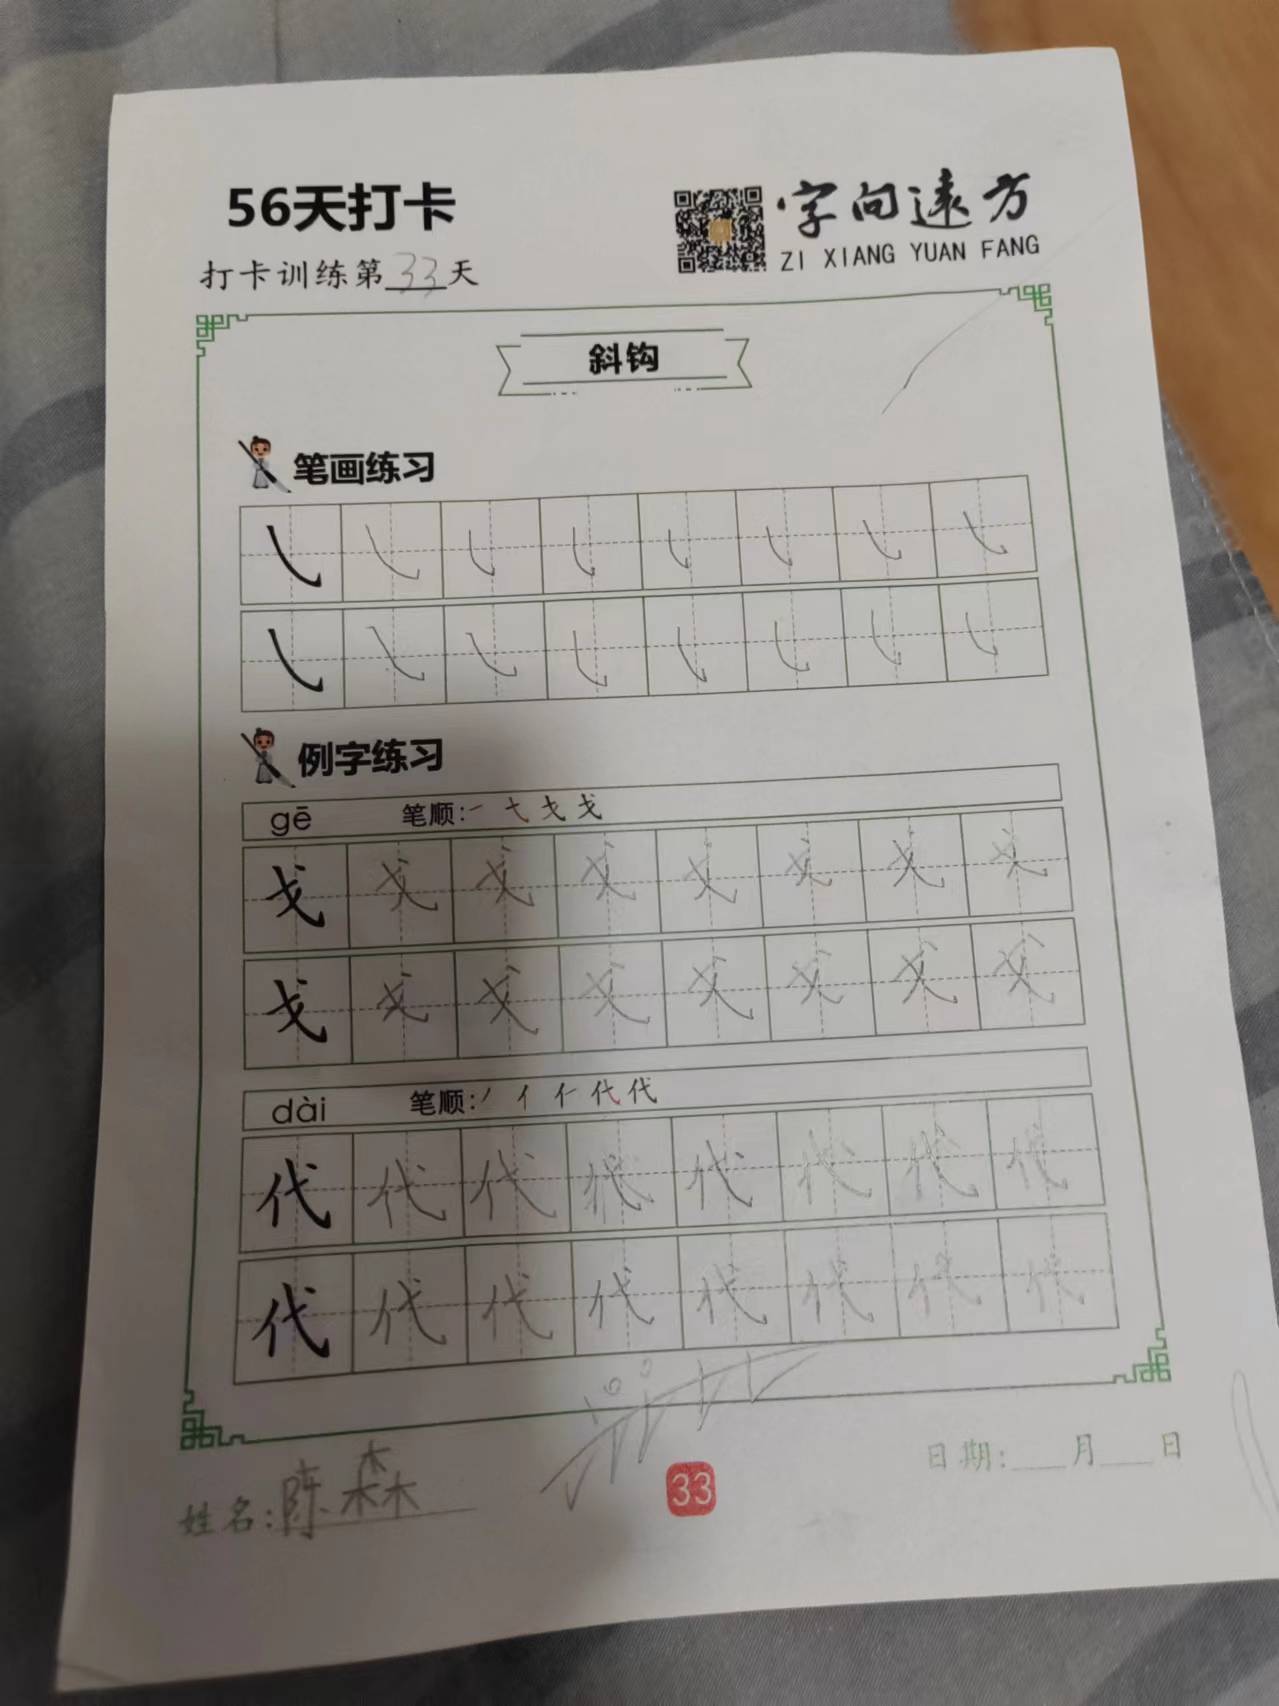 56天打卡
字向遠方
ZI XIANG YUAN FANG
打卡训练第33天
斜钩
笔画练习
例字练习
gē 笔顺:
戈 戈 戈 戈 戈 戈 戈 戈
戈 戈 戈 戈 戈 戈 戈 戈
dài 笔顺:
代 代 代 代 代 代 代 代
代 代 代 代 代 代 代 代
姓名:陈森
33
日期:___月___日